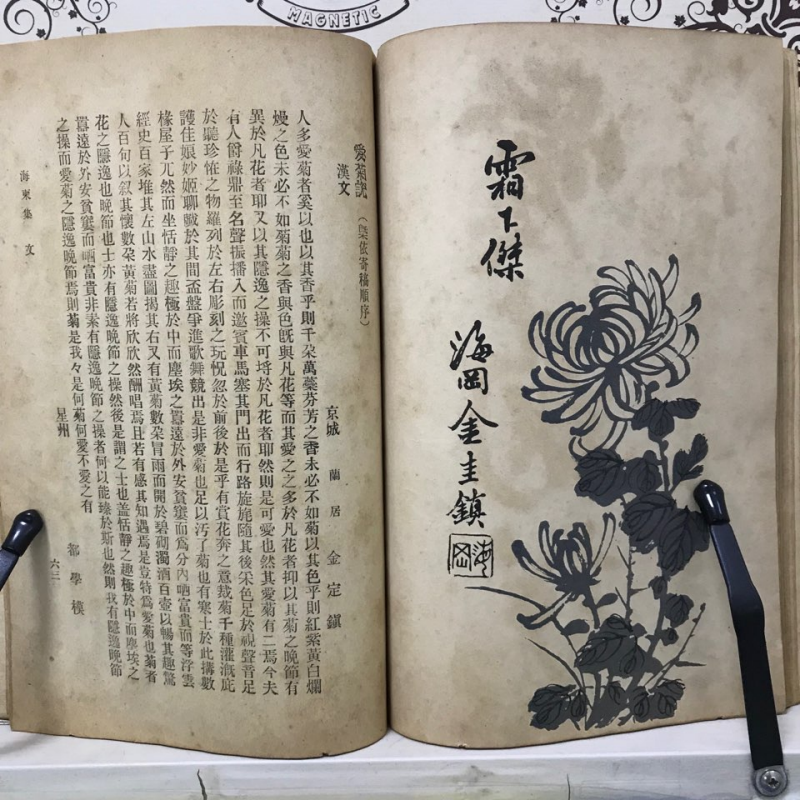 MAGNETIC
霜下傑
海岡金圭鎮
海岡
愛菊記 (傑依寄稿順序)
漢文
京城 蘭居 金定鎭
人多愛菊者奚以也以其香乎則千朶萬蘂芬芳之香未必不如菊以其色乎則紅紫黃白爛
熳之色未必不如菊菊之香與色旣與凡花等而其愛之之多於凡花者抑以其菊之晚節有
異於凡花者耶又以其隱逸之操不可埒於凡花者耶然則是可愛也然其愛菊有二焉今夫
有人爵祿鼎至名聲振播入而邀賓車馬塞其門出而行路旋旋隨其後采色足於視聲音足
於聽珍怪之物羅列於左右彫刻之玩怳忽於前後於是乎有賞花奔之意栽菊千種灌漑庇
護佳娘妙姬聊戱於其間盃盤爭進歌舞競出是非愛菊也足以汚了菊也有寒士於此搆數
椽屋子兀然而坐恬靜之趣極於中而塵埃之囂遠於外安貧窶而爲分內哂富貴而等浮雲
經史百家堆其左山水畵圖揭其右又有黃菊數朶冒雨而開於碧砌濁酒百壺以暢其趣驚
人百句以叙其懷數朶黃菊若將欣欣然酬唱焉且若有感其知遇焉是豈特爲愛菊也菊者
花之隱逸也晚節也士亦有隱逸晚節之操然後是謂之士也盖恬靜之趣極於中而塵埃之
囂遠於外安貧窶而哂富貴非素有隱逸晚節之操者何以能臻於斯也然則我有隱逸晚節
之操而愛菊之隱逸晚節焉則菊是我々是何菊何愛不愛之有
星州 都學模
海東集 文 六三